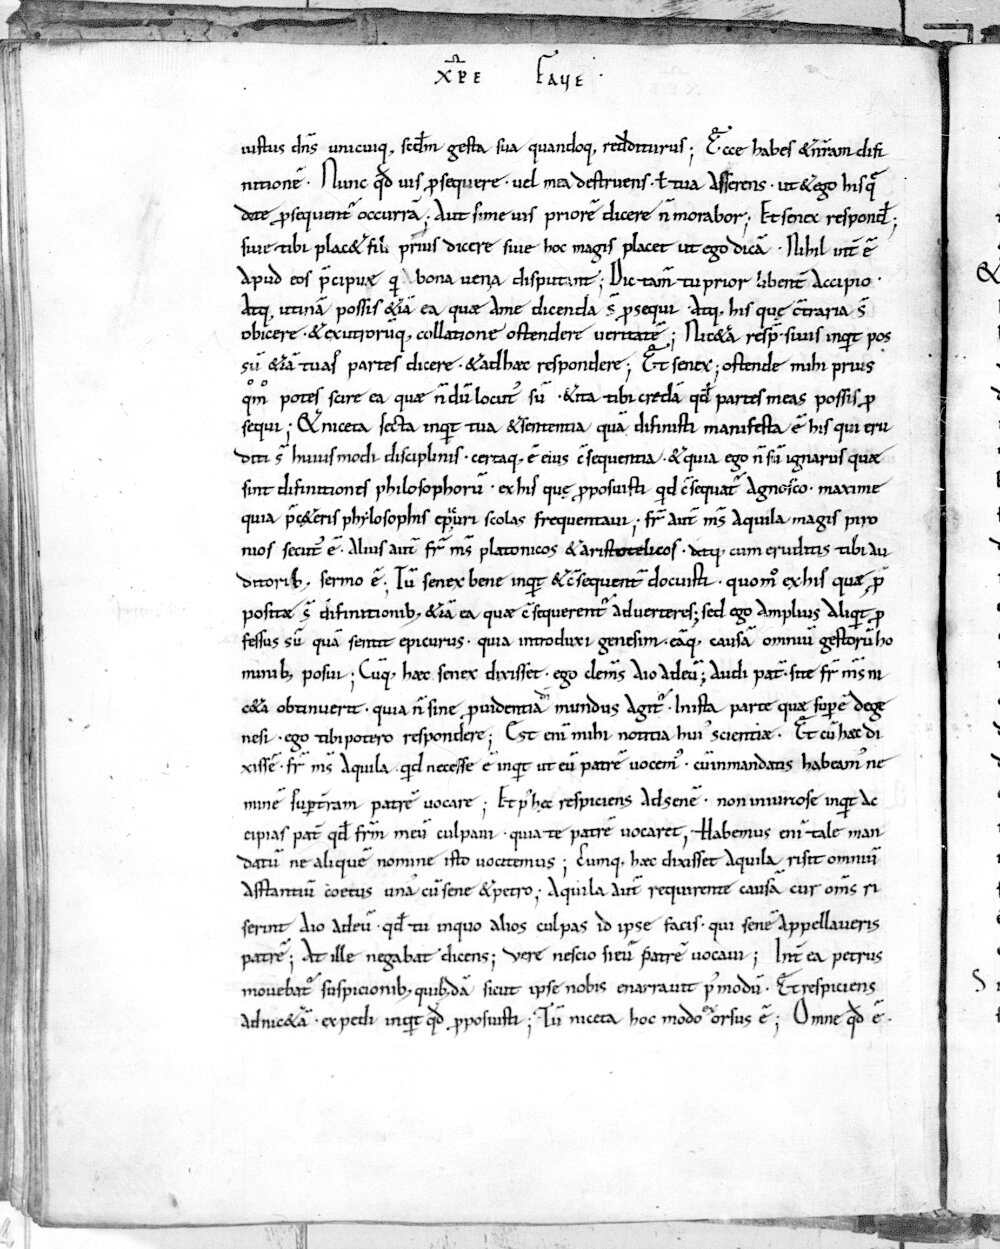 XPE FAVE
iustus dn̄s unicuiq; scdm̄ gesta sua quandoq; redditurus; Ecce habes & nr̄am difi
nitionē. Nunc qd̄ uis p̱sequere. uel mea destruens. ł tua asserens. ut & ego his q̄
dete p̱sequent̄ occurrā; Aut si me uis priorē dicere n̄ morabor; Et senex respond̄;
siue tibi plac& fili prius dicere siue hoc magis placet ut ego dicā. Nihil int̄ ē
apud eos p̄cipuæ qi bona uena disputant; Dic tam̄ tu prior libent̄ accipio.
Atq; utinā possis &iā ea quæ a me dicenda s̄ p̱sequi. Atq; his quę c̄traria s̄
obicere. & ex utrorūq; collatione ostendere ueritatē; Nic&a resp̄. siuis inqt pos
sū &iā tuas partes dicere. & ad hæc respondere; Et senex; ostende mihi prius
qm̊o potes scire ea quæ n̄dū locut' sū. & ita tibi credā qd̄ partes meas possis p̱
sequi; & niceta secta inqt tua & sententia quā difinisti manifesta ē his qui eru
diti s̄ huiusmodi disciplinis. certaq; ē eius c̄sequentia. & quia ego n̄ sū ignarus quæ
sint difinitiones philosophorū. ex his quę p̱posuisti qid c̄sequat' agnosco. maxime
quia p̄ c&eris philosophis epycuri scolas frequentaui; fr̄ aut̄ ms̄ aquila magis piro
nios secut' ē. Alius aut̄ fr̄ ms̄ platonicos & aristotelicos. itaq; cum eruditis tibi au
ditorib; sermo ē; Tū senex bene inqt & c̄sequent̄ docuisti. quomo̊ ex his quæ p̱
positæ s̄ difinitionib; &iā ea quæ c̄sequerent' aduerteres; sed ego amplius aliqit p̱
fessus sū quā sentit epicurus. quia introduxi genesim. eāq; causā omniū gestorū ho
minib; posui; Cūq; hæc senex dixisset. ego clem̄s aio ad eū; Audi pat̄. si te fr̄ ms̄ ni
c&a obtinuerit. quia n̄ sine p̱uidentia dī mundus agit'. In ista parte quæ sup̄ē de ge
nesi. ego tibi potero respondere; Est eni mihi notitia hui' scientiæ. Et cū hæc di
xissē. fr̄ ms̄ aquila. qid necesse ē inqt ut eū patrē uocem'. cū in mandatis habeam' ne
minē sup̱ t̄ram patrē uocare; Et p' hęc respiciens ad senē. non iniuriose inqt ac
cipias pat̄ qd̄ fr̄m̄ meū culpaui. quia te patrē uocaret; Habemus eni tale man
datū ne aliquē nomine isto uocitemus; Cumq; hæc dixisset aquila risit omniū
asstantiū coetus unā cū sene & petro; Aquila aut̄ requirente causā cur om̄s ri
serint aio ad eū. qd̄ tu inquo alios culpas id ipse facis. qui senē appellaueris
patrē; At ille negabat dicens; Vere nescio si eū patrē uocaui; Int̄ ea petrus
mouebat' suspicionib; quib; dā sicut ipse nobis enarrauit p' modū. Et respiciens
ad nic&ā. expedi inqt qd̄ p̱posuisti; Tū niceta hoc modo orsus ē; Omne qd̄ ē.